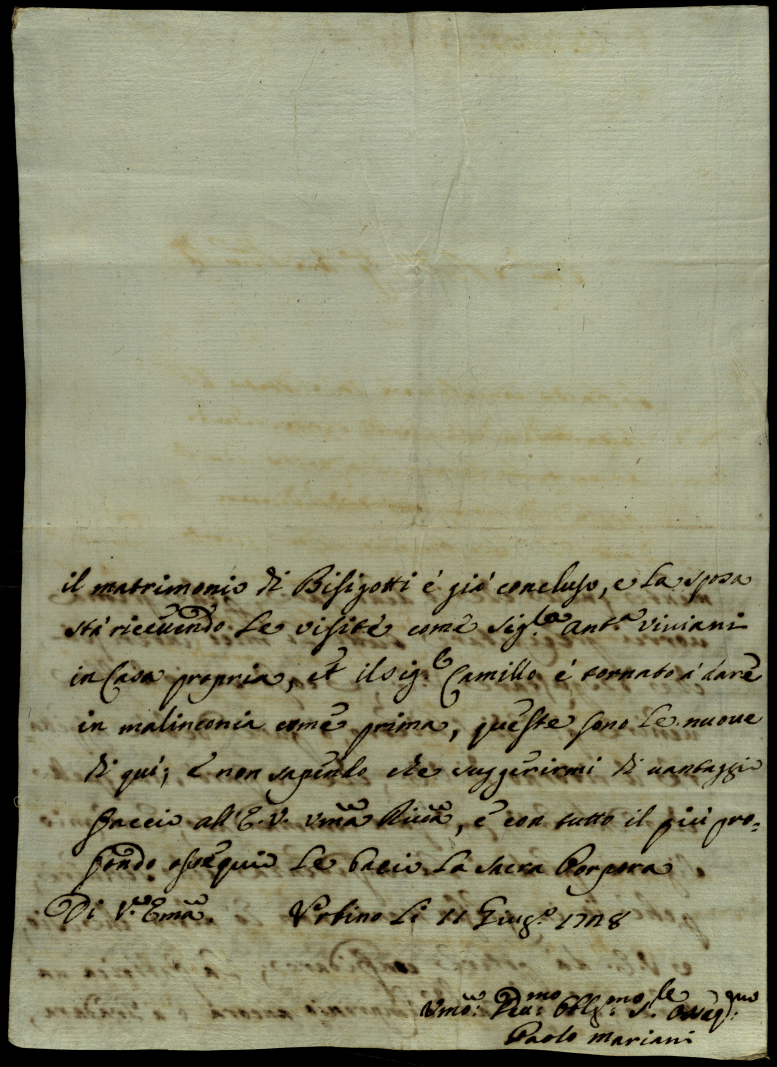 il matrimonio di Bisigotti é giá concluso, e la sposa
stá riceuendo le visite come Sig.le Ant.a Viviani
in Casa propria, et il Sig.e Camillo é tornato á dare
in malinconia come prima, queste sono le nuoue
di qui; e non sapendo che suggerirmi di uantaggio
faccio all' E. V. Vmã Riuã, e con tutto il piu pro=
fondo osequio le bacio la Sacra Porpora
Di V.ra Emã. Vrbino li 11 Giug.o 1728
Vmõ: Diu:mo Obblg:mo S.le Osseq:mo
Paolo Mariani